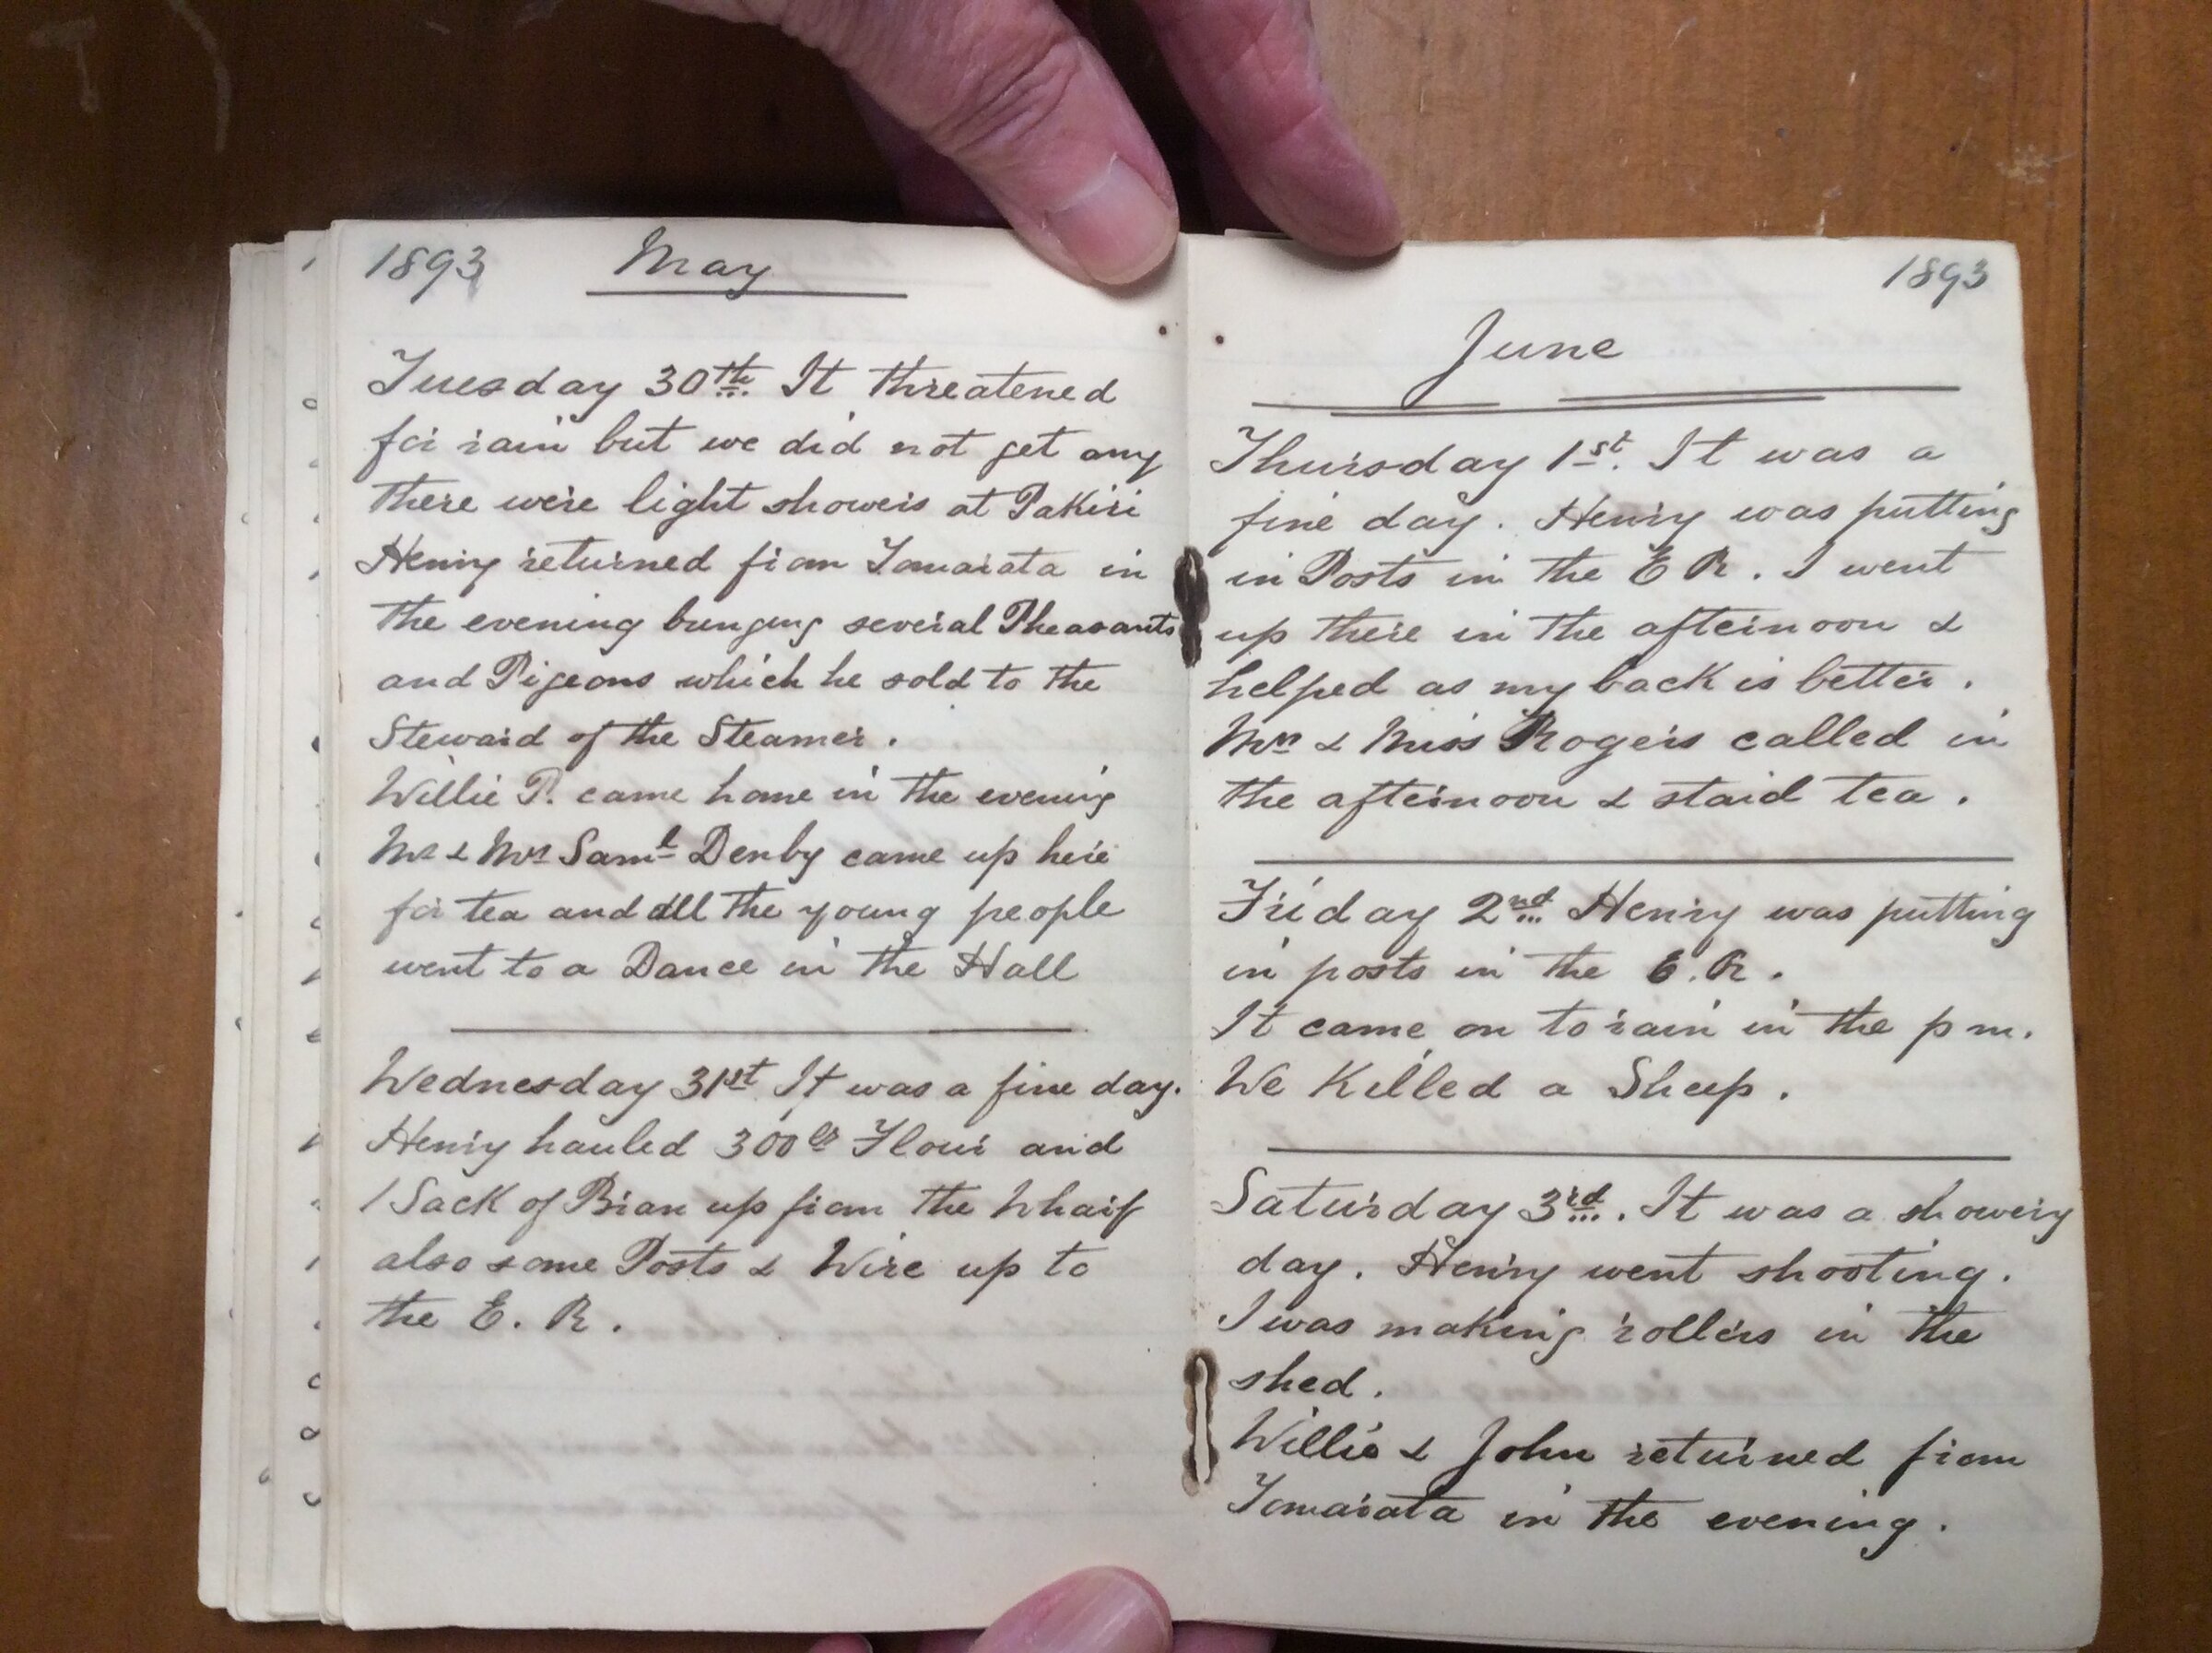 1893 May
Tuesday 30th. It threatened
for rain but we did not get any
there were light showers at Pakiri
Henry returned from Tomarata in
the evening bringing several Pheasants
and Pigeons which he sold to the
Steward of the Steamer.
Willie P. came home in the evening
Mr & Mrs Saml Denby came up here
for tea and all the young people
went to a Dance in the Hall
Wednesday 31st It was a fine day.
Henry hauled 300 lb Flour and
1 Sack of Bran up from the Wharf
also some Posts & Wire up to
the E. R.
1893
June
Thursday 1st. It was a
fine day. Henry was putting
in Posts in the E R. I went
up there in the afternoon &
helped as my back is better.
Mrs & Miss Rogers called in
the afternoon & staid tea.
Friday 2nd Henry was putting
in posts in the E. R.
It came on to rain in the p m.
We Killed a Sheep.
Saturday 3rd. It was a showery
day. Henry went shooting.
I was making rollers in the
shed.
Willie & John returned from
Tomarata in the evening.